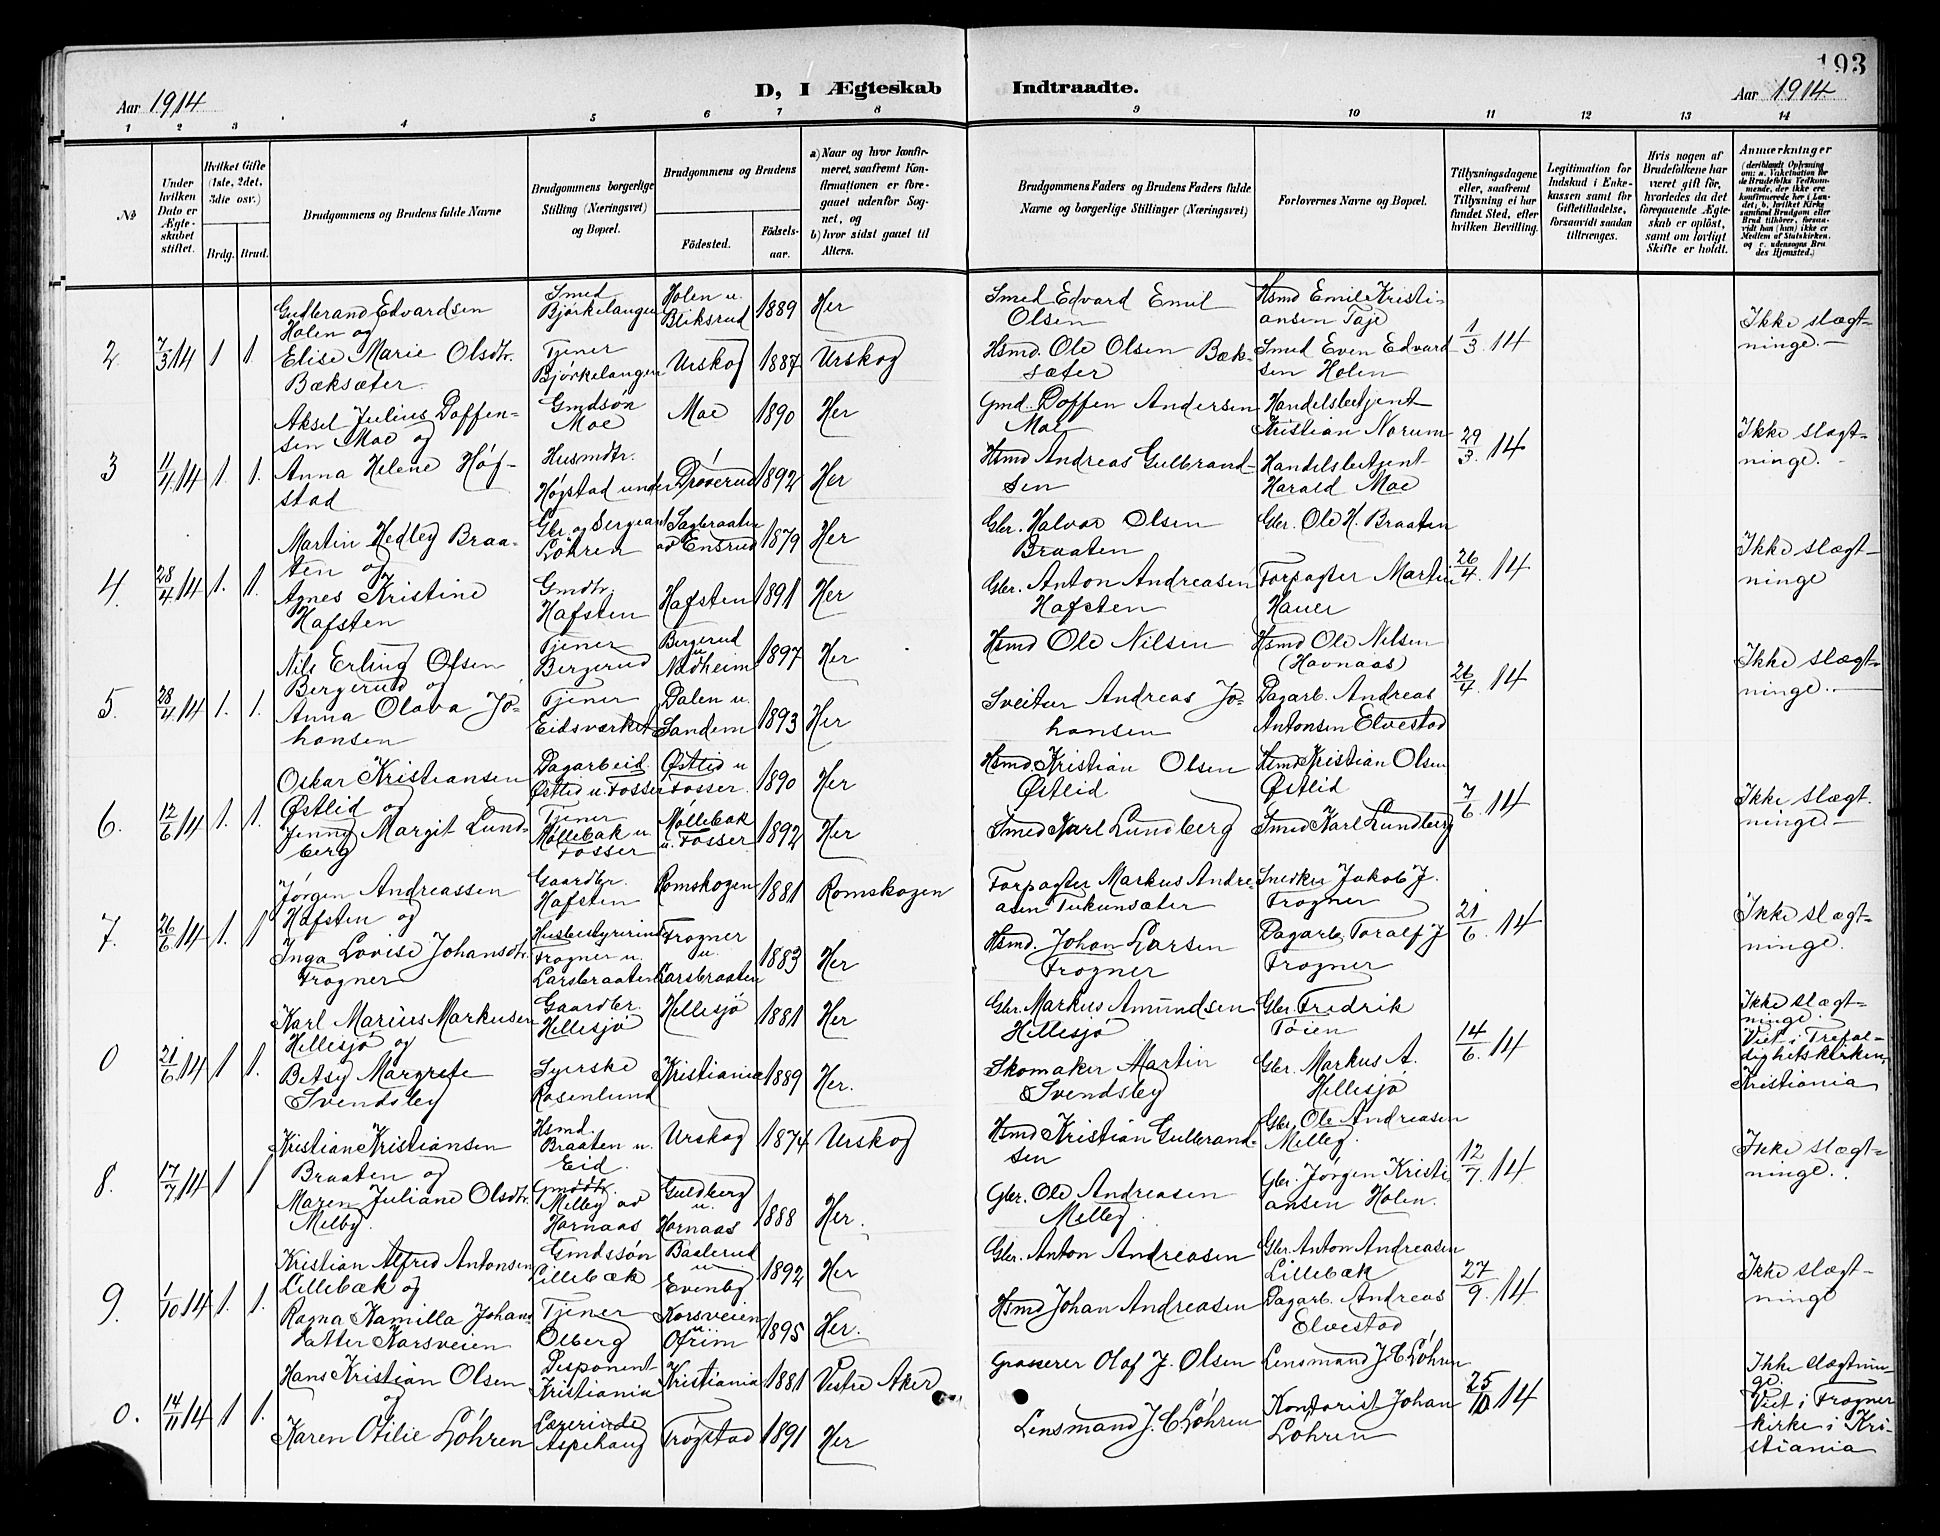 193
Aar 1914
D, I Ægteskab Indtraadte.
Aar 1914
1 2 3 4 5 6 7 8 9 10 11 12 13 14
№
Under hvilken Dato er Ægteskabet stiftet.
Hvilket Gifte (1ste, 2det, 3die osv.)
Brdg. Brud.
Brudgommens og Brudens fulde Navne
Brudgommens borgerlige Stilling (Næringsvei) og Bopæl.
Brudgommens og Brudens
Fødested.
Fødselsaar.
a) Naar og hvor konfirmeret, saafremt Konfirmationen er foregaaet udenfor Sognet, og
b) hvor sidst gaaet til Alters.
Brudgommens Faders og Brudens Faders fulde Navne og borgerlige Stillinger (Næringsvei)
Forlovernes Navne og Bopæl.
Tillysningsdagene eller, saafremt Tillysning ei har fundet Sted, efter hvilken Bevilling.
Legitimation for Indskud i Enkekassen samt for Giftetilladelse, forsaavidt saadan tiltrænges.
Hvis nogen af Brudefolkene har været gift før, hvorledes da det foregaaende Ægteskab er opløst, samt om lovligt Skifte er holdt.
Anmærkninger
(deriblandt Oplysning om: a. Vakcination for de Brudefolks Vedkommende, der ikke ere konfirmerede her i Landet; b. hvilket Kirkesamfund Brudgom eller Brud tilhører, forsaavidt han (hun) ikke er Medlem af Statskirken, og c. udensogns Brudes Hjemsted.)
2. 7/3 14 1 1.
Gudbrand Edvardsen Holen og
Smed Bjørkelangen
Holen u. Bliksrud 1889 Her
Smed Edvard Emil Olsen
Hsmd Emil Kristiansen Taje
1/3. 14
Ikke slægtninge.
Elise Marie Olsdtr. Bæksæter.
Tjener Bjørkelangen
Urskog 1887 Urskog
Hsmd. Ole Olsen Bæksæter
Smed Even Edvardsen Holen
3 11/4 14 1. 1.
Aksel Julius Doffensen Moe og
Gmdsøn Moe
Moe 1890 Her
Gmd. Doffen Andersen Moe
Handelsbetjent Kristian Norum
29/3. 14
Ikke slægtninge.
Anna Helene Høgstad
Husmdtr. Høgstad under
Drøverud 1892 Her
Hsmd Andreas Gulbrandsen
Handelsbetjent Harald Moe
4. 28/4 14 1. 1.
Martin Hedley Braaten og
Gbr. og Sergeant Løhren
Sagbraaten ad Ensrud 1879 Her
Gbr. Halvor Olsen Braaten
Gbr. Ole H. Braaten
26/4. 14
Ikke slægtninge
Agnes Kristine Hafsten
Gmdtr. Hafsten
Hafsten 1891 Her
Gbr. Anton Andreasen Hafsten
Forpagter Martin Hauer
5. 28/4 14 1. 1.
Nils Erling Olsen Bergerud og
Tjener Bergerud
Bergerud u Nædheim 1897 Her
Hsmd Ole Nilsen
Hsmd Ole Nilsen (Havnaas)
26/4. 14
Ikke slægtninge.
Anna Olava Johansen
Tjener Eidsverket
Dalen u. Sandem 1893 Her
Sveitser Andreas Johansen
Dagarb. Andreas Antonsen Elvestad
6. 12/6 14 1. 1.
Oskar Kristiansen Østlid og
Dagarbeid. Østlid u. Fosser
Østlid u Fosser. 1890 Her
Hsmd Kristian Olsen Østlid
Hsmd Kristian Olsen Østlid
7/6. 14
Ikke slægt. ninge.
Jenny Margit Lundberg
Tjener Møllebak u. Fosser
Møllebak u. Fosser 1892 Her
Smed Karl Lundberg
Smed Karl Lundberg
7. 26/6 14 1. 1
Jørgen Andreassen Hafsten og
Gaardbr. Hafsten
Romskogen 1881 Romskogen
Forpagter Markus Andreasen Tukunsæter
Snedker Jakob J. Frogner
21/6. 14
Ikke slægtninge.
Inga Lovise Johansdtr. Frogner
Husbestyrerinde Frogner u. Larsbraaten
Frogner u. Larsbraaten 1883 Her
Hsmd. Johan Larsen Frogner
Dagarb. Toralf J Frogner
0 21/6 14 1 1.
Karl Marius Markusen Hellesjø og
Gaardbr. Hellesjø
Hellesjø 1881 Her
Gbr. Markus Amundsen Hellesjø
Gbr. Fredrik Tøien
14/6. 14
Ikke slægtninge. Viet i Trefoldighetskirken, Kristiania
Betsy Margrete Svendsby
Syerske Rosenlund
Kristiania 1889 Her.
Skomaker Martin Svendsby
Gbr. Markus A. Hellesjø
8. 17/7 14 1 1
Kristian Kristiansen Braaten og
Hsmd. Braaten u. Eid.
Urskog 1874 Urskog
Hsmd Kristian Gulbrandsen
Gbr. Ole Andreasen Melby.
12/7. 14
Ikke slægtninge.
Maren Juliane Olsdtr. Melby.
Gmddtr. Melby ad Hornaas
Guldberg u. Hornaas 1888 Her.
Gbr. Ole Andreasen Melby
Gbr. Jørgen Kristiansen Holen.
9. 1/10 14 1. 1.
Kristian Alfred Antonsen Lillebæk og
Gmdssøn Lillebæk
Baslerud u Evenby 1892 Her
Gbr. Anton Andreasen
Gbr. Anton Andreasen Lillebæk
27/9. 14
Ikke slægtninge
Ragna Kamilla Johansdatter Korsveien
Tjener Olberg
Korsveien u Ofrim 1895 Her.
Hsmd Johan Andreasen
Dagarb. Andreas Elvestad
0. 14/11 14 1 1.
Hans Kristian Olsen og
Disponent Kristiania
Kristiania 1881 Vestre Aker
Grosserer Olaf J. Olsen
Lensmand J. C Løhren
25/10 14
Ikke slægtninge. Viet i Frogner kirke i Kristiania
Karen Otilie Løhren
Lærerinde Aspehaug
Trøgstad 1891 Her
Lensmand J. C Løhren
Kontorist Johan Løhren